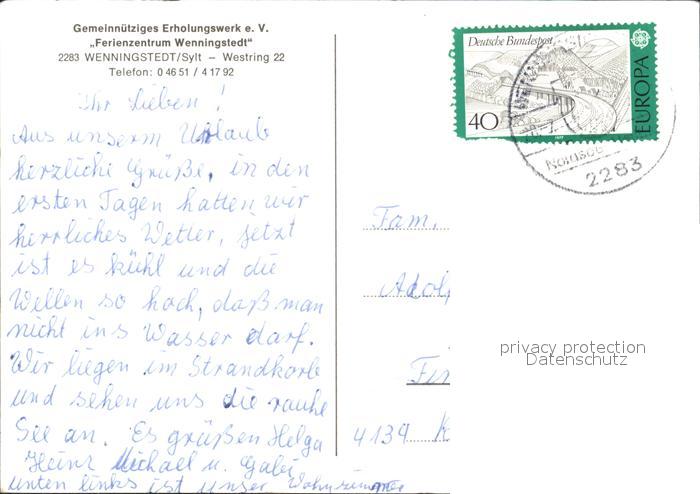 Gemeinnütziges Erholungswerk e. V.
„Ferienzentrum Wenningstedt“
2283 WENNINGSTEDT/Sylt – Westring 22
Telefon: 0 46 51 / 4 17 92
Ihr Lieben!
Aus unserm Urlaub
herzliche Grüße, in den
ersten Tagen hatten wir
herrliches Wetter, jetzt
ist es kühl und die
Wellen so hoch, daß man
nicht ins Wasser darf.
Wir liegen im Strandkorb
und sehen uns die rauhe
See an. Es grüßen Helga
Heinz Michael u. Gabi
unten links ist unser Wohnzimmer
Deutsche Bundespost
40
1977
EUROPA
2283
Fam.
Adol
4134 K
privacy protection
Datenschutz